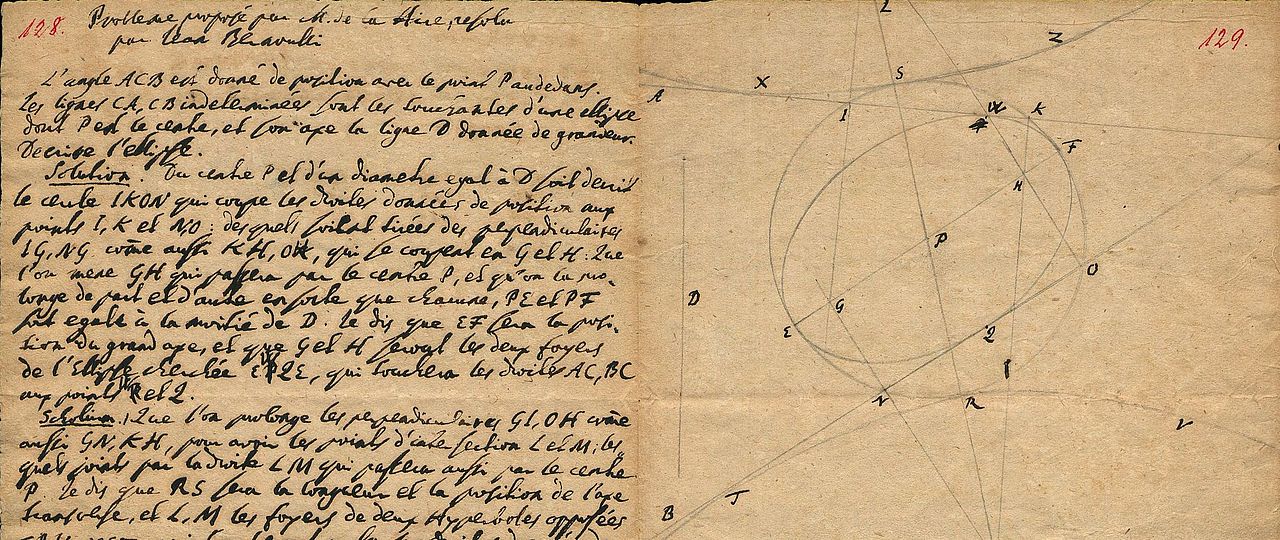 128.
Probleme proposé par M. de la Hire, resolu
par Jean Bernoulli
L'angle ACB est donné de position avec le point P audedans.
Les lignes CA, CB indeterminées sont les touchantes d'une ellipse
dont P est le centre, et son axe la ligne D donnée de grandeur.
Decrire l'ellipse.
Solution. Du centre P et d'un diametre egal à D soit decrit
le cercle IKON qui coupe les droites données de position aux
points I, K et N, O: desquels soient tirées des perpendiculaires
IG, NG. come aussi KH, OH, qui se coupent en G et H. Que
l'on mene GH qui passera par le centre P, et qu'on la pro-
longe de part et d'autre en sorte que chacune, PE et PF
soit egale à la moitié de D. Je dis que EF sera la posi-
tion du grand axe, et que G et H seront les deux foyers
de l'Ellipse cherchée EFQE, qui touchera les droites AC, BC
aux points et Q.
Scholium. Que l'on prolonge les perpendiculaires GI, OH come
aussi GN, KH, pour avoir les points d'intersection L et M, les
quels joints par la droite LM qui passera aussi par le centre
P. Je dis que RS sera la longueur et la position de l'axe
transverse, et L, M les foyers de deux Hyperboles opposées
129.
L
Z
S
X
A
I
K
F
H
P
O
D
G
E
Q
N
R
V
T
B